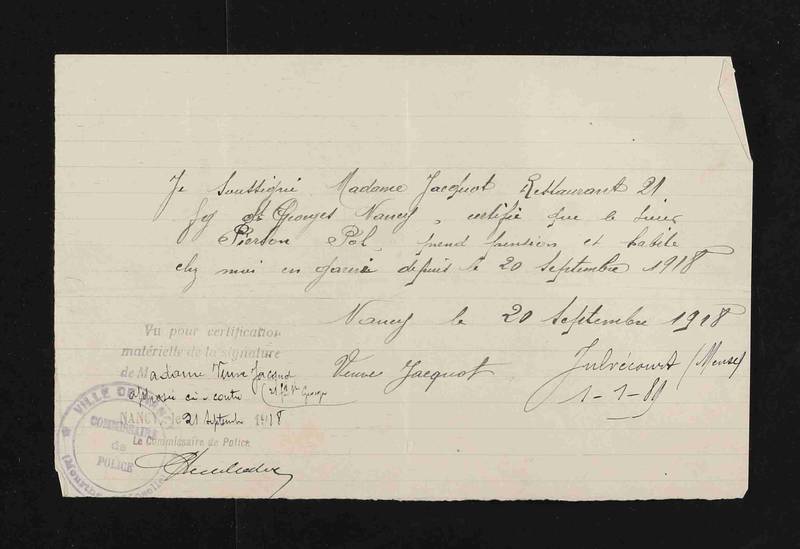 Je soussigné Madame Jacquot Restaurant 21
fbg St Georges Nancy, certifie que le sieur
Pierson Pol, prend pension et habite
chez moi en garni depuis le 20 Septembre 1918
Nancy le 20 Septembre 1918
Veuve Jacquot
Jubécourt (Meuse)
1-1-89
Vu pour certification
matérielle de la signature
de Madame Veuve Jacquot
apposée ci-contre (21 fg St Georges
NANCY, le 21 Septembre 1918
Le Commissaire de Police
VILLE DE NANCY
COMMISSAIRE
de
POLICE
(Meurthe Moselle)